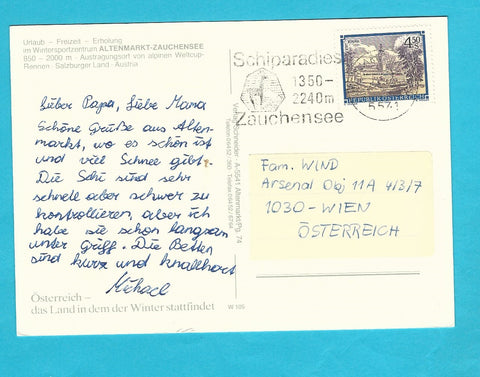 Urlaub - Freizeit - Erholung
im Wintersportzentrum ALTENMARKT-ZAUCHENSEE
850 - 2000 m - Austragungsort von alpinen Weltcup-
Rennen · Salzburger Land · Austria
Lieber Papa, Liebe Mama
Schöne Grüße aus Alten-
markt, wo es schön ist
und viel Schnee gibt.
Die Schi sind sehr
schnell aber schwer zu
kontrollieren, aber ich
habe sie schon langsam
unter Griff. Die Betten
sind kurz und knallhart
Michael
Österreich –
das Land in dem der Winter stattfindet
W 105
Schiparadies
1350-
2240m
Zauchensee
5541
4.50
REPUBLIK ÖSTERREICH
Fam. WIND
Arsenal Obj 11A 4/3/7
1030-WIEN
ÖSTERREICH